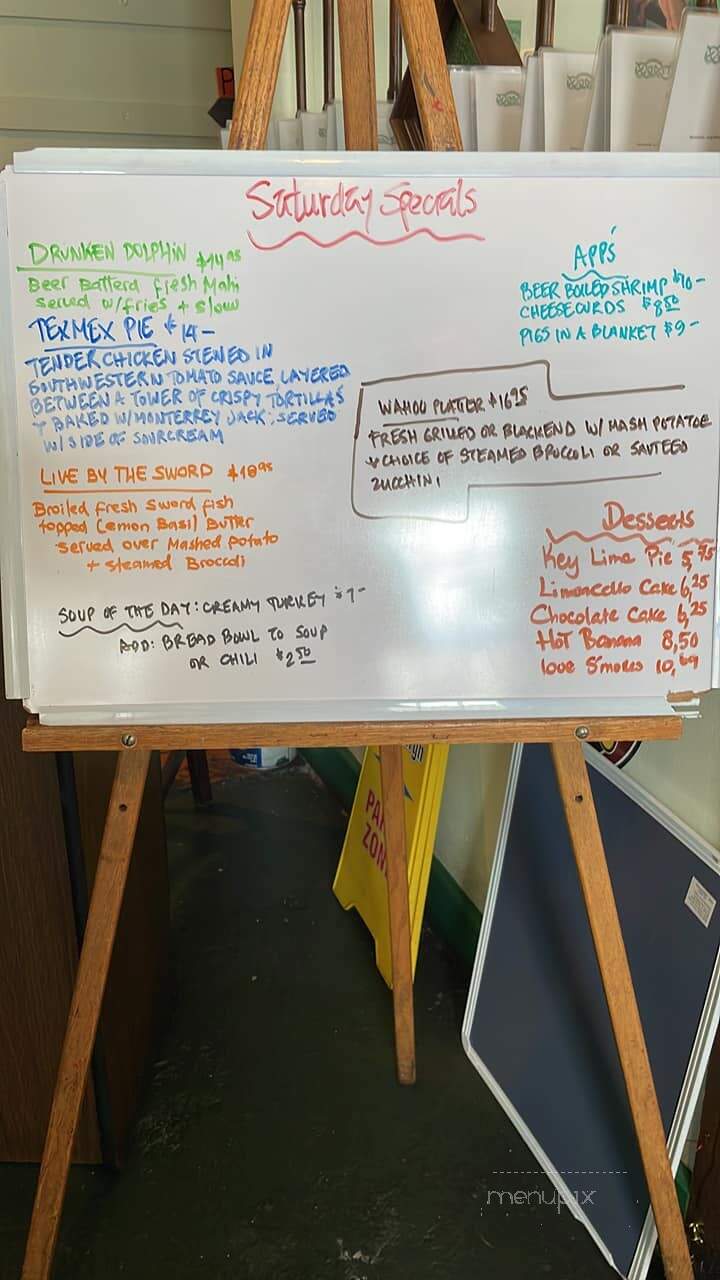 Saturday Specials
DRUNKEN DOLPHIN $14.95
Beer Batterd fresh Mahi
served w/fries + slow
TEXMEX PIE $14-
TENDER CHICKEN STEWED IN
SOUTHWESTERN TOMATO SAUCE LAYERED
BETWEEN A TOWER OF CRISPY TORTILLAS
+ BAKED W/MONTERREY JACK; SERVED
W/SIDE OF SOURCREAM
LIVE BY THE SWORD $18.95
Broiled fresh Sword fish
topped Lemon Basil Butter
served over Mashed Potato
+ steamed Broccoli
SOUP OF THE DAY: CREAMY TURKEY $7-
ADD: BREAD BOWL TO SOUP
OR CHILI $2.50
APPS
BEER BOILED SHRIMP $10-
CHEESECURDS $8.50
PIGS IN A BLANKET $9-
WAHOO PLATTER $16.95
FRESH GRILLED OR BLACKEND W/ MASH POTATOE
+ CHOICE OF STEAMED BROCCOLI OR SAUTEED
ZUCCHINI
Desserts
Key Lime Pie 5,75
Limoncello Cake 6,25
Chocolate Cake 6,25
Hot Banana 8,50
love S'mores 10,69
ZONE
menupix